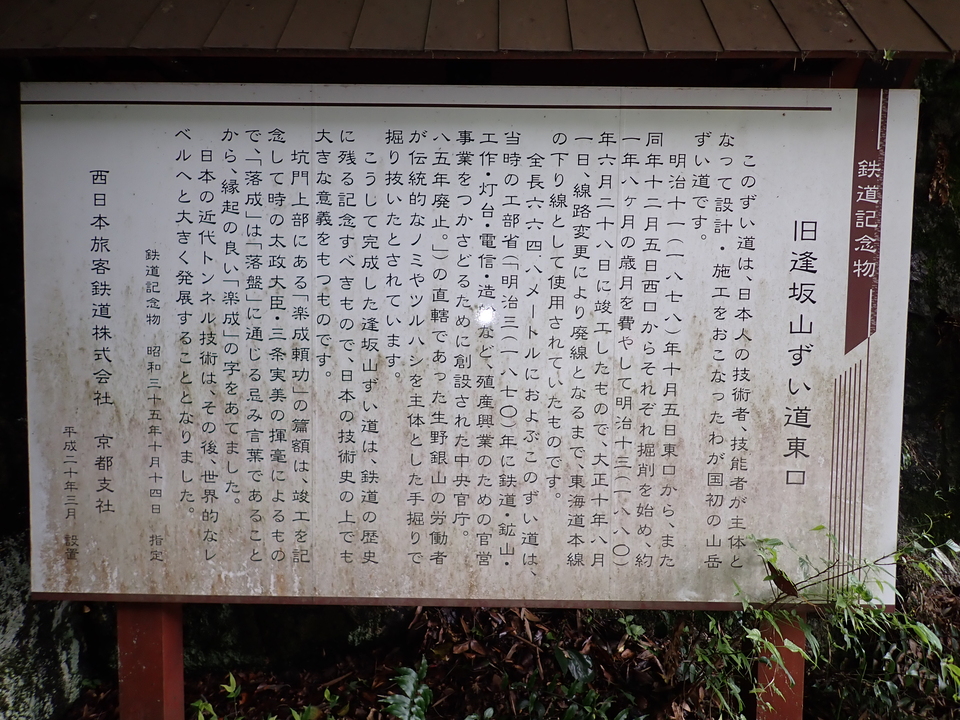 鉄道記念物
旧逢坂山ずい道東口
このずい道は、日本人の技術者、技能者が主体と
なって設計・施工をおこなったわが国初の山岳
ずい道です。
明治十一(一八七八)年十月五日東口から、また
同年十二月五日西口からそれぞれ掘削を始め、約
一年八ヶ月の歳月を費やして明治十三(一八八〇)
年六月二十八日に竣工したもので、大正十年八月
一日、線路変更により廃線となるまで、東海道本線
の下り線として使用されていたものです。
全長六六四.八メートルにおよぶこのずい道は、
当時の工部省(明治三(一八七〇)年に鉄道・鉱山・
工作・灯台・電信・造など、殖産興業のための官営
事業をつかさどるために創設された中央官庁。
八五年廃止。)の直轄であった生野銀山の労働者
が伝統的なノミやツルハシを主体とした手掘りで
掘り抜いたとされています。
こうして完成した逢坂山ずい道は、鉄道の歴史
に残る記念すべきもので、日本の技術史の上でも
大きな意義をもつものです。
坑門上部にある「楽成頼功」の篇額は、竣工を記
念して時の太政大臣・三条実美の揮毫によるもの
で、「落成」は「落盤」に通じる忌み言葉であること
から、縁起の良い「楽成」の字をあてました。
日本の近代トンネル技術は、その後、世界的なレ
ベルへと大きく発展することとなりました。
鉄道記念物 昭和三十五年十月十四日 指定
西日本旅客鉄道株式会社 京都支社
平成二十年三月 設置